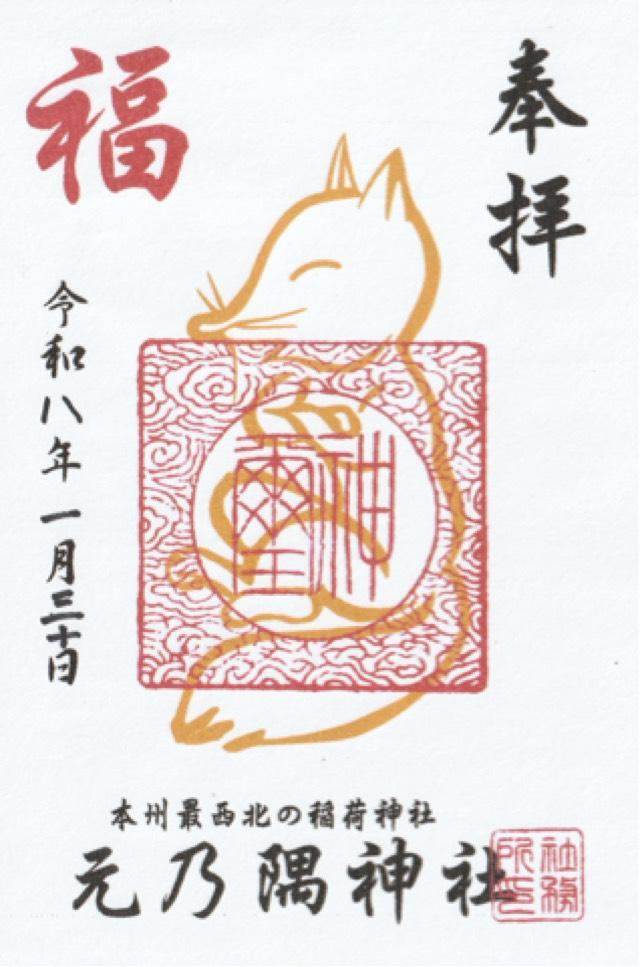 奉拝
福
神璽
令和八年一月三十日
本州最西北の稲荷神社
元乃隅神社
社務所印